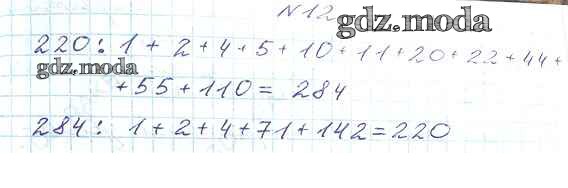 N12
gdz.moda
220: 1 + 2 + 4 + 5 + 10 + 11 + 20 + 22 + 44 +
gdz.moda
+ 55 + 110 = 284
284: 1 + 2 + 4 + 71 + 142 = 220